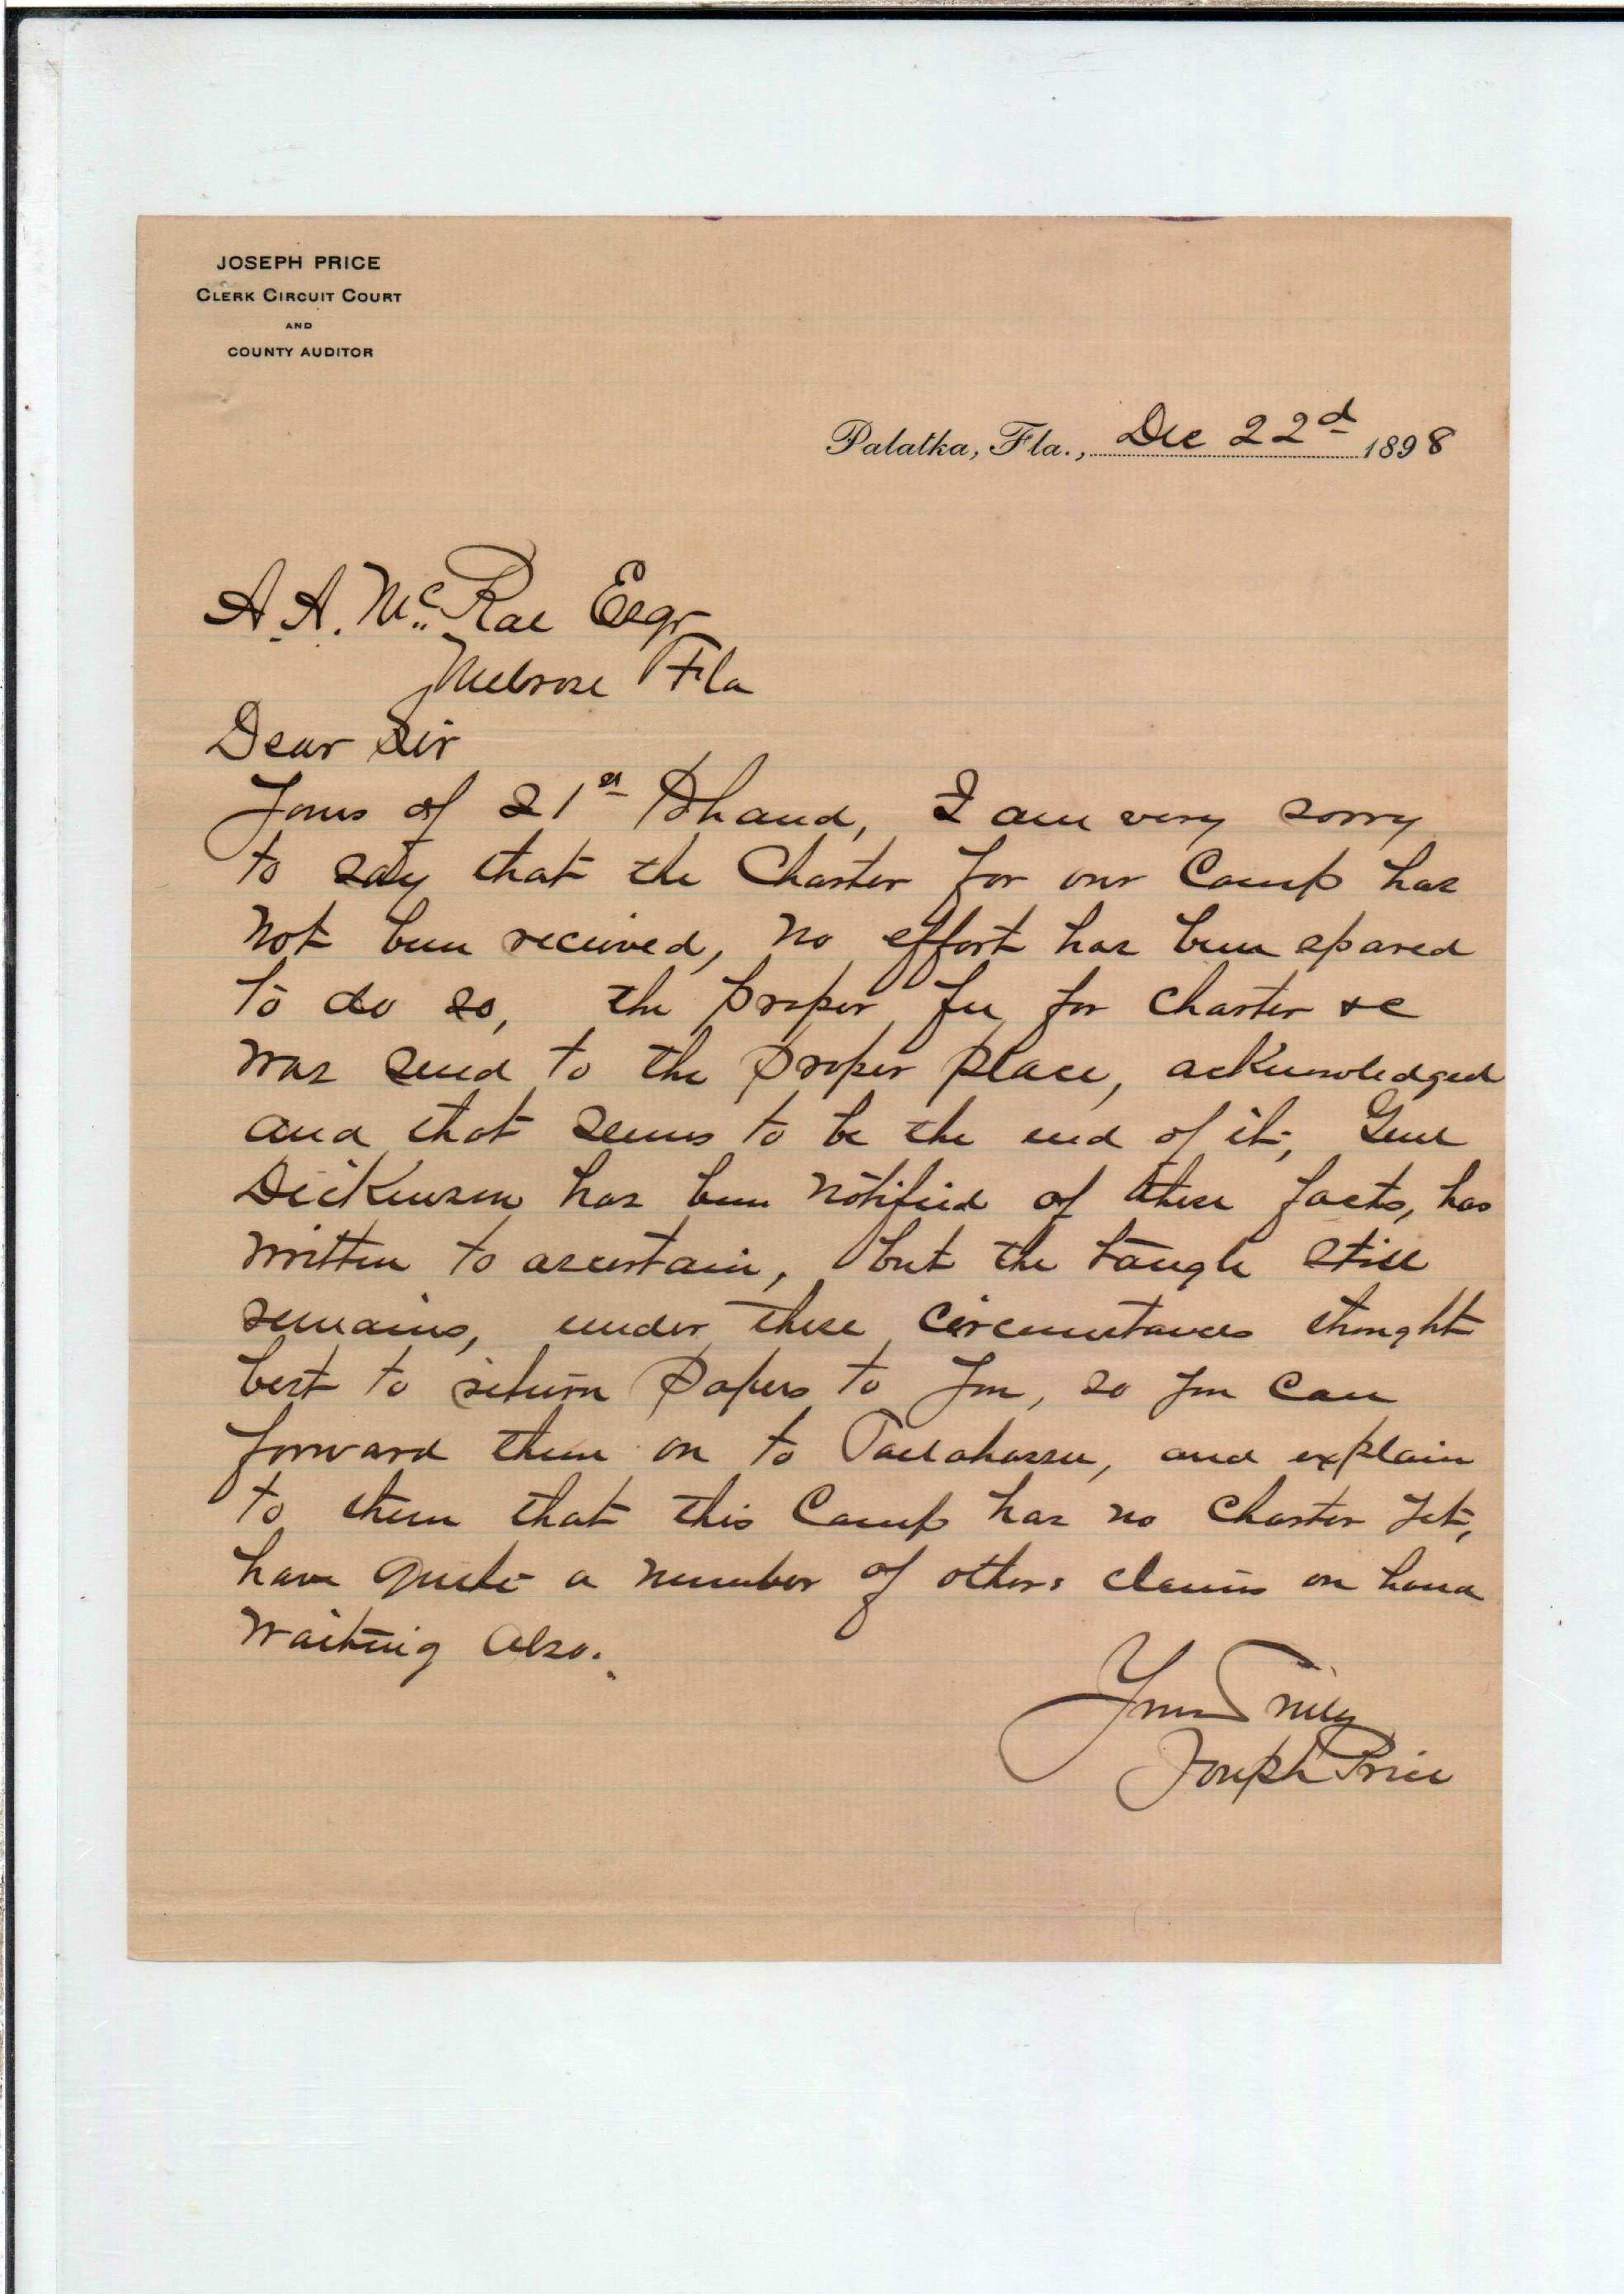 JOSEPH PRICE
CLERK CIRCUIT COURT
AND
COUNTY AUDITOR
Palatka, Fla., Dec 22d 1898
A. A. McRae Esqr
Melrose Fla
Dear Sir
Yours of 21st to hand, I am very sorry
to say that the Charter for our Camp has
not been received, no effort has been spared
to do so, the proper fee for charter &c
was send to the proper place, acknowledged
and that seems to be the end of it, Genl
Dickenson has been notified of these facts, has
written to ascertain, but the tangle still
remains, under these circumstances thought
best to return papers to you, so you can
forward them on to Tallahassee, and explain
to them that this Camp has no Charter yet,
have quite a number of others claims on hand
waiting also.
Yours Truly
Joseph Price